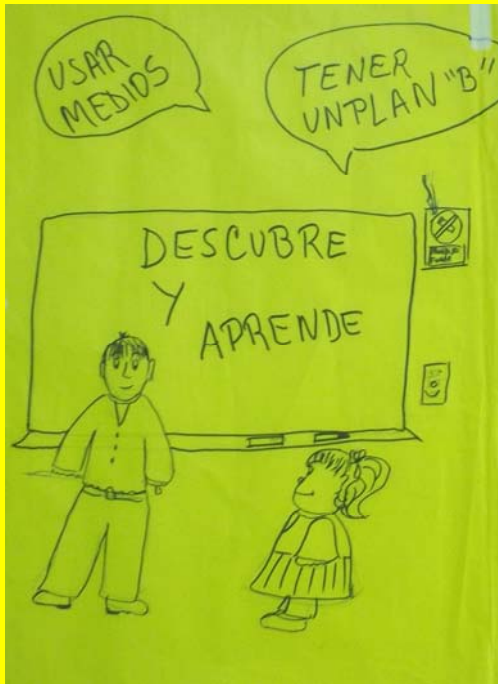 USAR
MEDIOS
TENER
UN PLAN "B"
DESCUBRE
Y
APRENDE